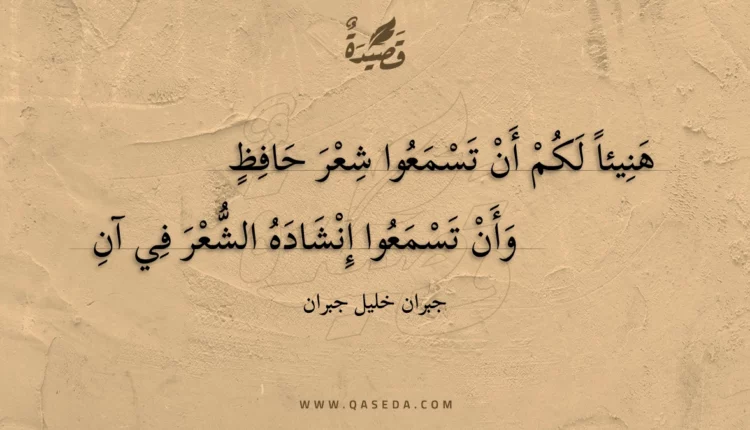 قَصِيدَةٌ
هَنِيئاً لَكُمْ أَنْ تَسْمَعُوا شِعْرَ حَافِظٍ
وَأَنْ تَسْمَعُوا إِنْشَادَهُ الشُّعْرَ فِي آنِ
جبران خليل جبران
WWW.QASEDA.COM